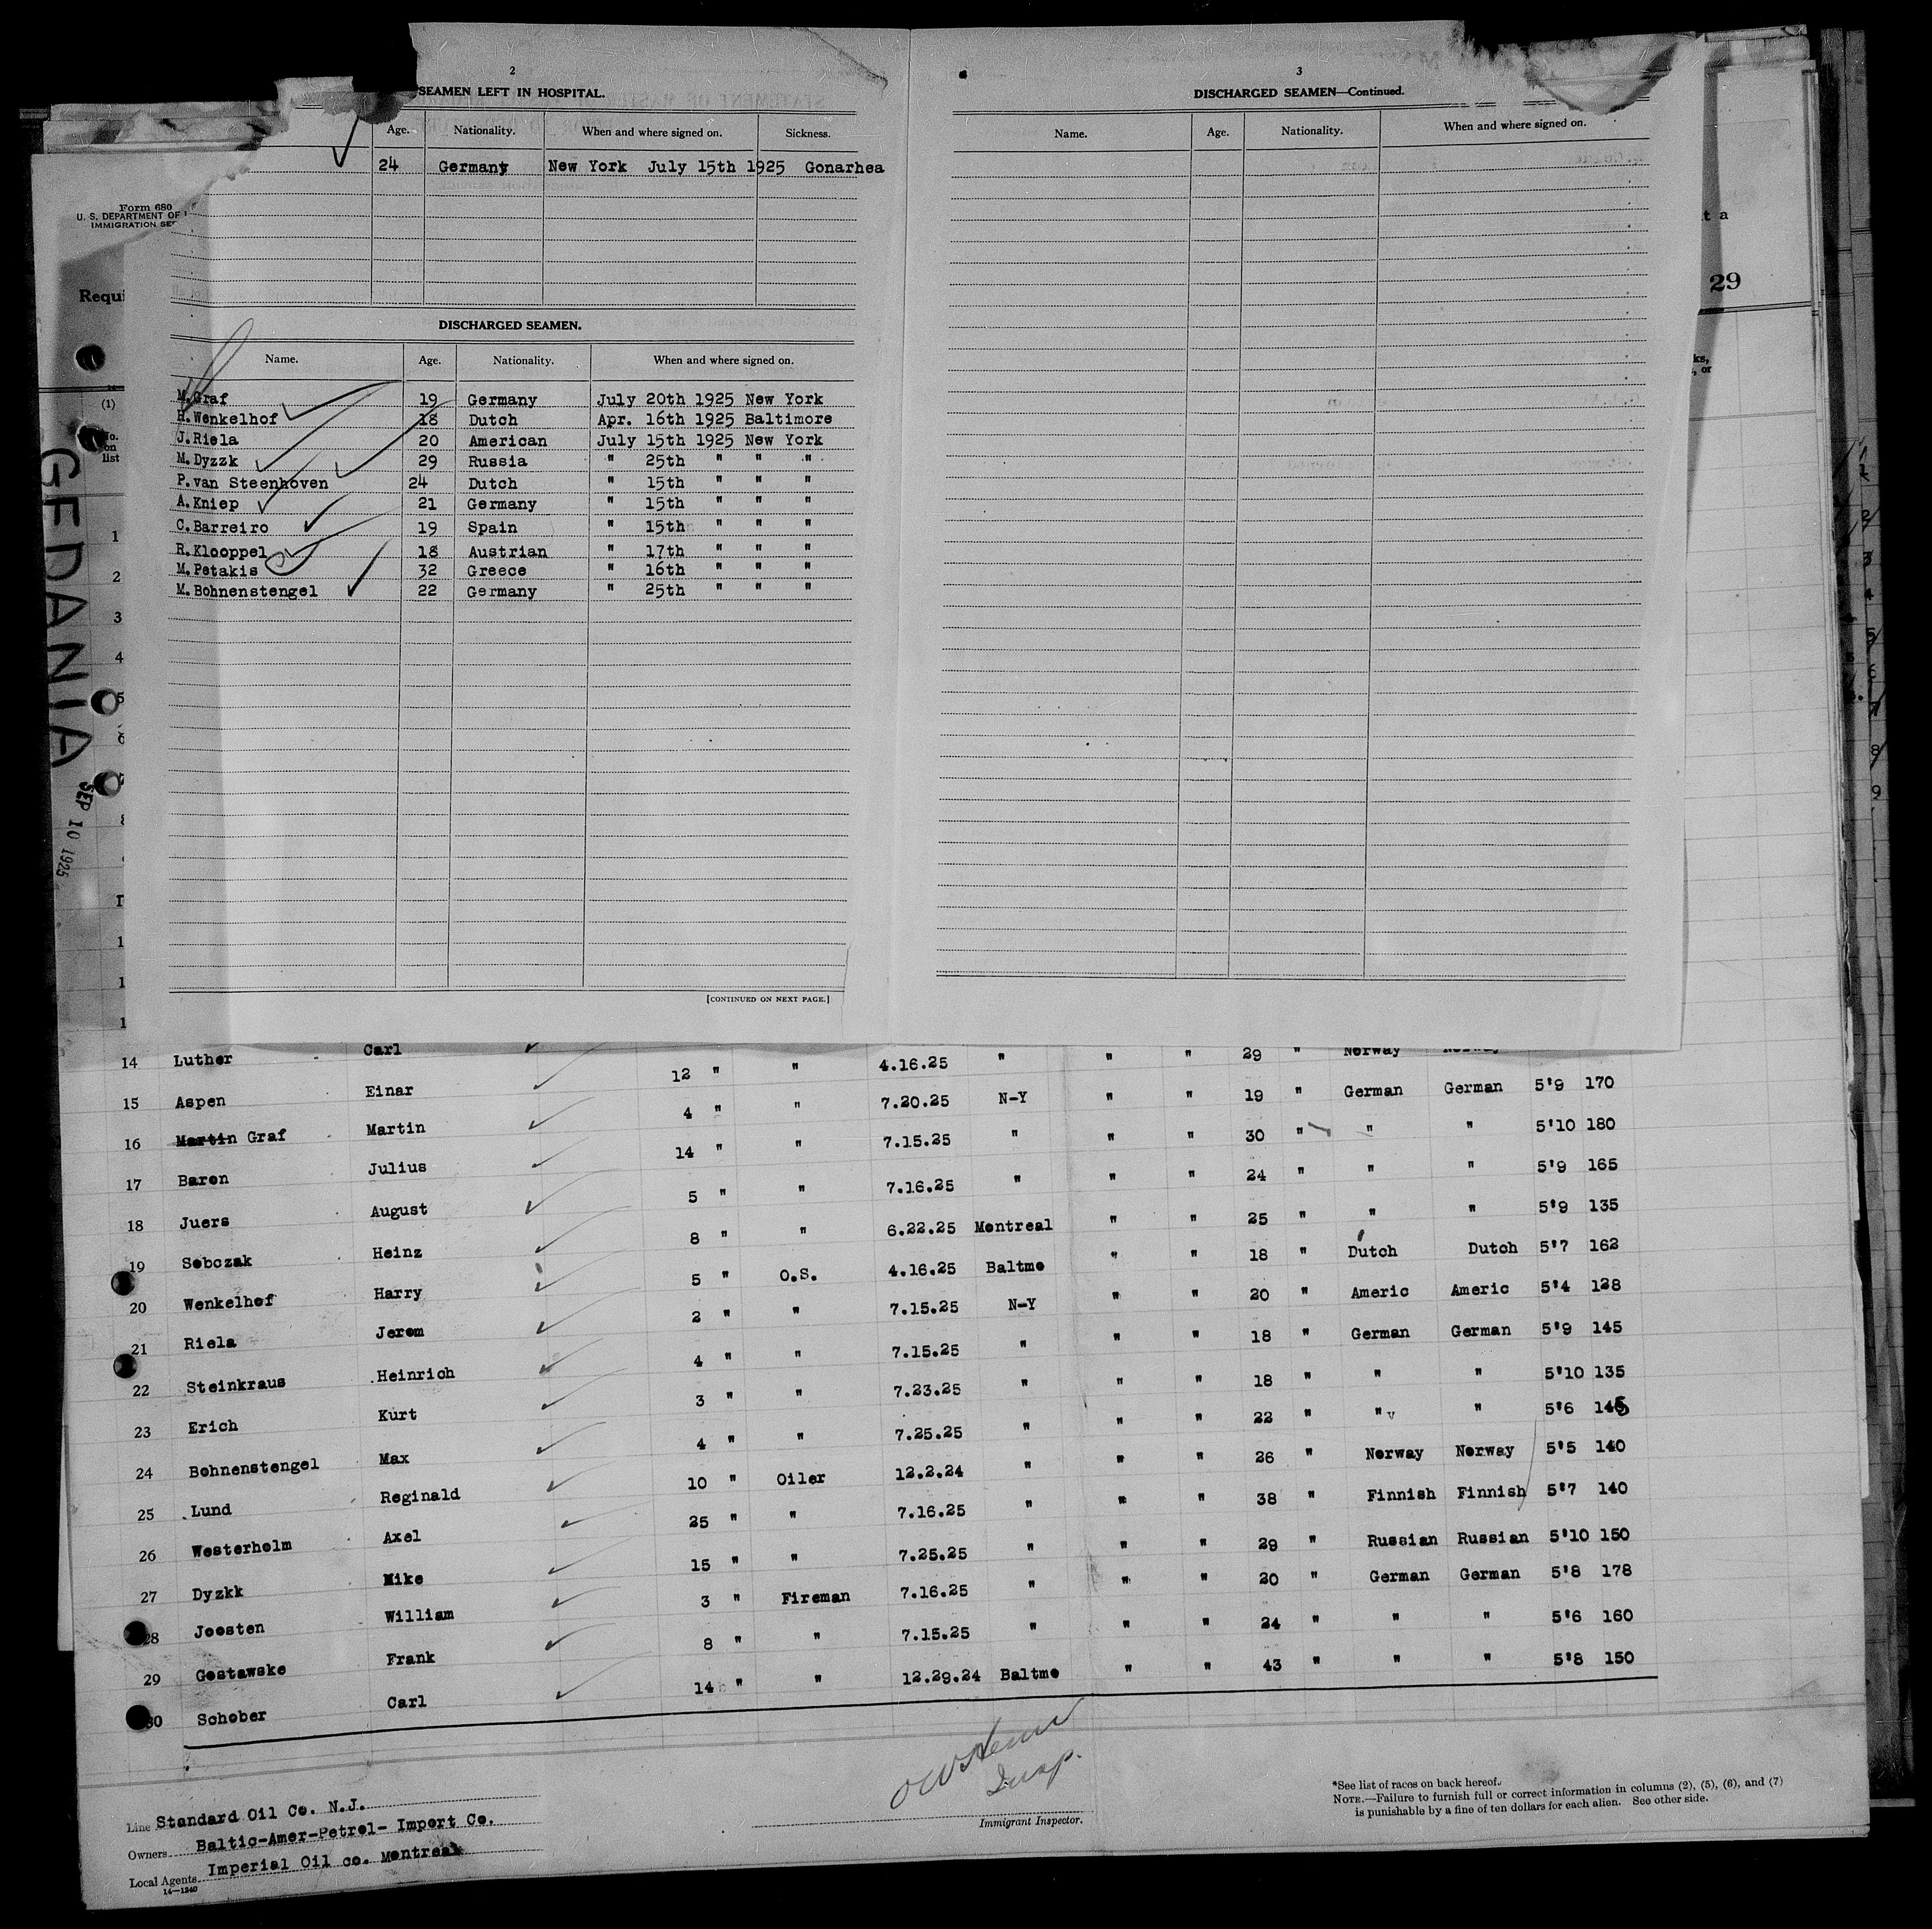 2
SEAMEN LEFT IN HOSPITAL.
Age. Nationality. When and where signed on. Sickness.
24 Germany New York July 15th 1925 Gonarhea
Form 680
U. S. DEPARTMENT OF
IMMIGRATION SE
Requi
(1)
No.
on
list
GEDANIA
SEP 10 1925
DISCHARGED SEAMEN.
Name. Age. Nationality. When and where signed on.
M.Graf 19 Germany July 20th 1925 New York
H.Wenkelhof 18 Dutch Apr. 16th 1925 Baltimore
J.Riela 20 American July 15th 1925 New York
M.Dyzzk 29 Russia " 25th " " "
P.van Steenhoven 24 Dutch " 15th " " "
A.Kniep 21 Germany " 15th " " "
C.Barreiro 19 Spain " 15th " " "
R.Klooppel 18 Austrian " 17th " " "
M.Petakis 32 Greece " 16th " " "
M.Bohnenstengel 22 Germany " 25th " " "
[CONTINUED ON NEXT PAGE.]
3
DISCHARGED SEAMEN—Continued.
Name. Age. Nationality. When and where signed on.
t a
29
ks,
, or
1
2
3
4
5
14 Luther Carl 12 " " 4.16.25 " " " 29 " Norway Norway
15 Aspen Einar 4 " " 7.20.25 N-Y " " 19 " German German 5'9 170
16 Martin Graf Martin 14 " " 7.15.25 " " " 30 " " " 5'10 180
17 Baron Julius 5 " " 7.16.25 " " " 24 " " " 5'9 165
18 Juers August 8 " " 6.22.25 Montreal " " 25 " " " 5'9 135
19 Sobczak Heinz 5 " O.S. 4.16.25 Baltmo " " 18 " Dutch Dutch 5'7 162
20 Wenkelhof Harry 2 " " 7.15.25 N-Y " " 20 " Americ Americ 5'4 128
21 Riela Jerom 4 " " 7.15.25 " " " 18 " German German 5'9 145
22 Steinkraus Heinrich 3 " " 7.23.25 " " " 18 " " " 5'10 135
23 Erich Kurt 4 " " 7.25.25 " " " 22 " " " 5'6 145
24 Bohnenstengel Max 10 " Oiler 12.2.24 " " " 26 " Norway Norway 5'5 140
25 Lund Reginald 25 " " 7.16.25 " " " 38 " Finnish Finnish 5'7 140
26 Westerholm Axel 15 " " 7.25.25 " " " 29 " Russian Russian 5'10 150
27 Dyzkk Mike 3 " Fireman 7.16.25 " " " 20 " German German 5'8 178
28 Joosten William 8 " " 7.15.25 " " " 24 " " " 5'6 160
29 Gostawske Frank 14 " " 12.29.24 Baltmo " " 43 " " " 5'8 150
30 Schober Carl
Insp.
Immigrant Inspector.
Line Standard Oil Co. N.J.
Owners Baltic-Amer-Petrol- Import Co.
Local Agents Imperial Oil co. Montreal
14—1240
*See list of races on back hereof.
NOTE.—Failure to furnish full or correct information in columns (2), (5), (6), and (7)
is punishable by a fine of ten dollars for each alien. See other side.